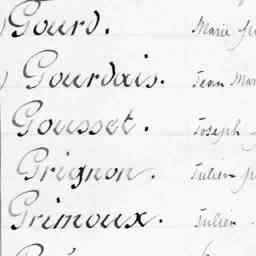 Gourd. Marie
Gourdais. Jean Mar
Gousset. Joseph
Grignon. Julien
Grimoux. Julien